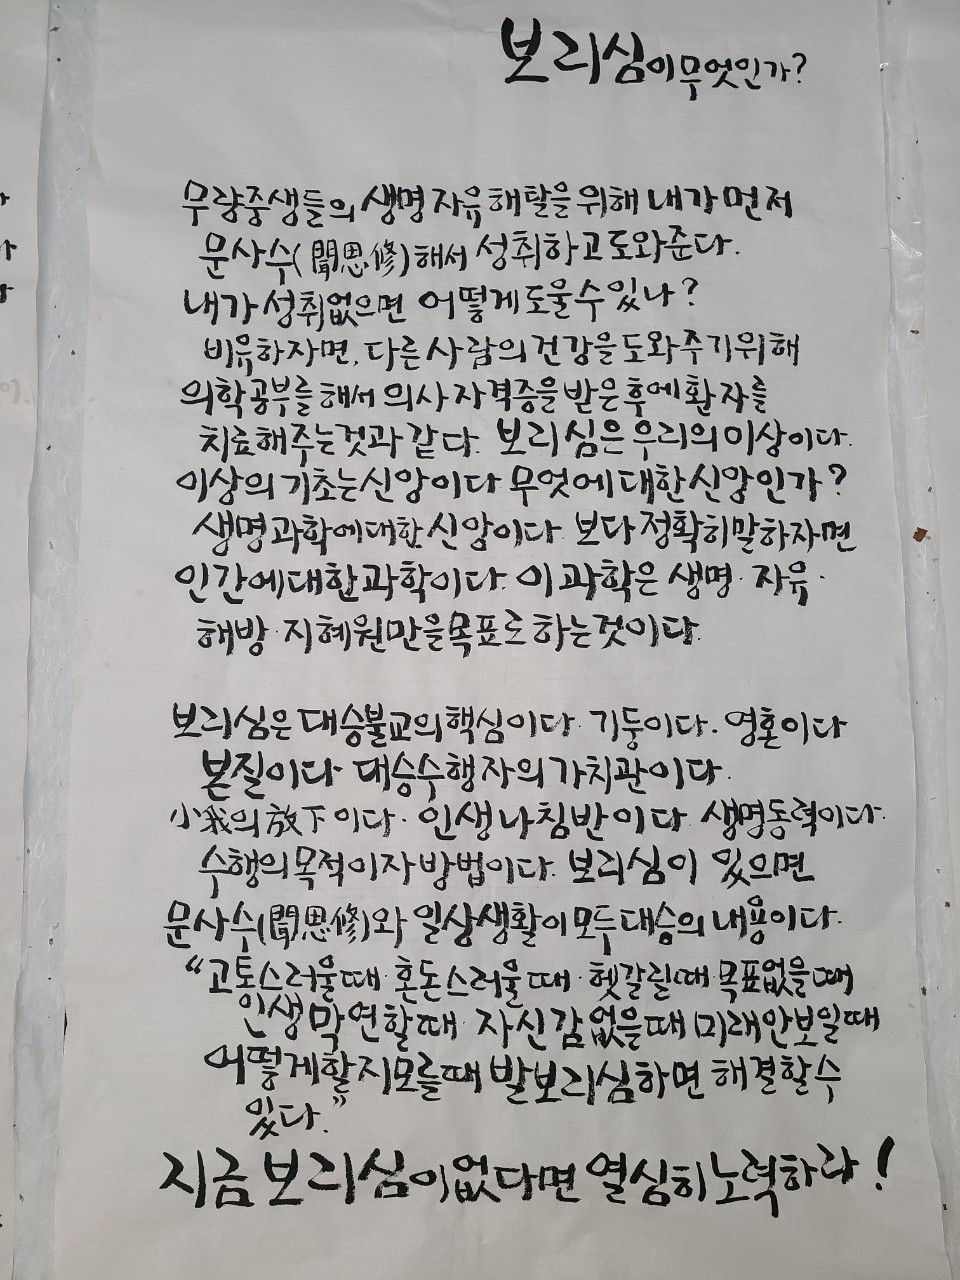 보리심이 무엇인가?
무량중생들의 생명 자유 해탈을 위해 내가 먼저
문사수(聞思修)해서 성취하고 도와준다.
내가 성취없으면 어떻게 도울 수 있나?
비유하자면, 다른 사람의 건강을 도와주기위해
의학공부를 해서 의사 자격증을 받은 후에 환자를
치료해주는것과 같다. 보리심은 우리의 이상이다.
이상의 기초는 신앙이다 무엇에 대한 신앙인가?
생명과학에대한 신앙이다 보다 정확히 말하자면
인간에대한 과학이다. 이 과학은 생명·자유·
해방·지혜원만을 목표로 하는것이다.
보리심은 대승불교의 핵심이다. 기둥이다. 영혼이다
본질이다 대승수행자의 가치관이다.
小我의 放下이다. 인생나침반이다 생명동력이다.
수행의 목적이자 방법이다. 보리심이 있으면
문사수(聞思修)와 일상생활이 모두 대승의 내용이다.
"고통스러울때·혼돈스러울때·헷갈릴때 목표없을때
인생 막연할때 자신감 없을때 미래안보일때
어떻게할지모를때 발보리심하면 해결할수
있다."
지금 보리심이없다면 열심히 노력하라!